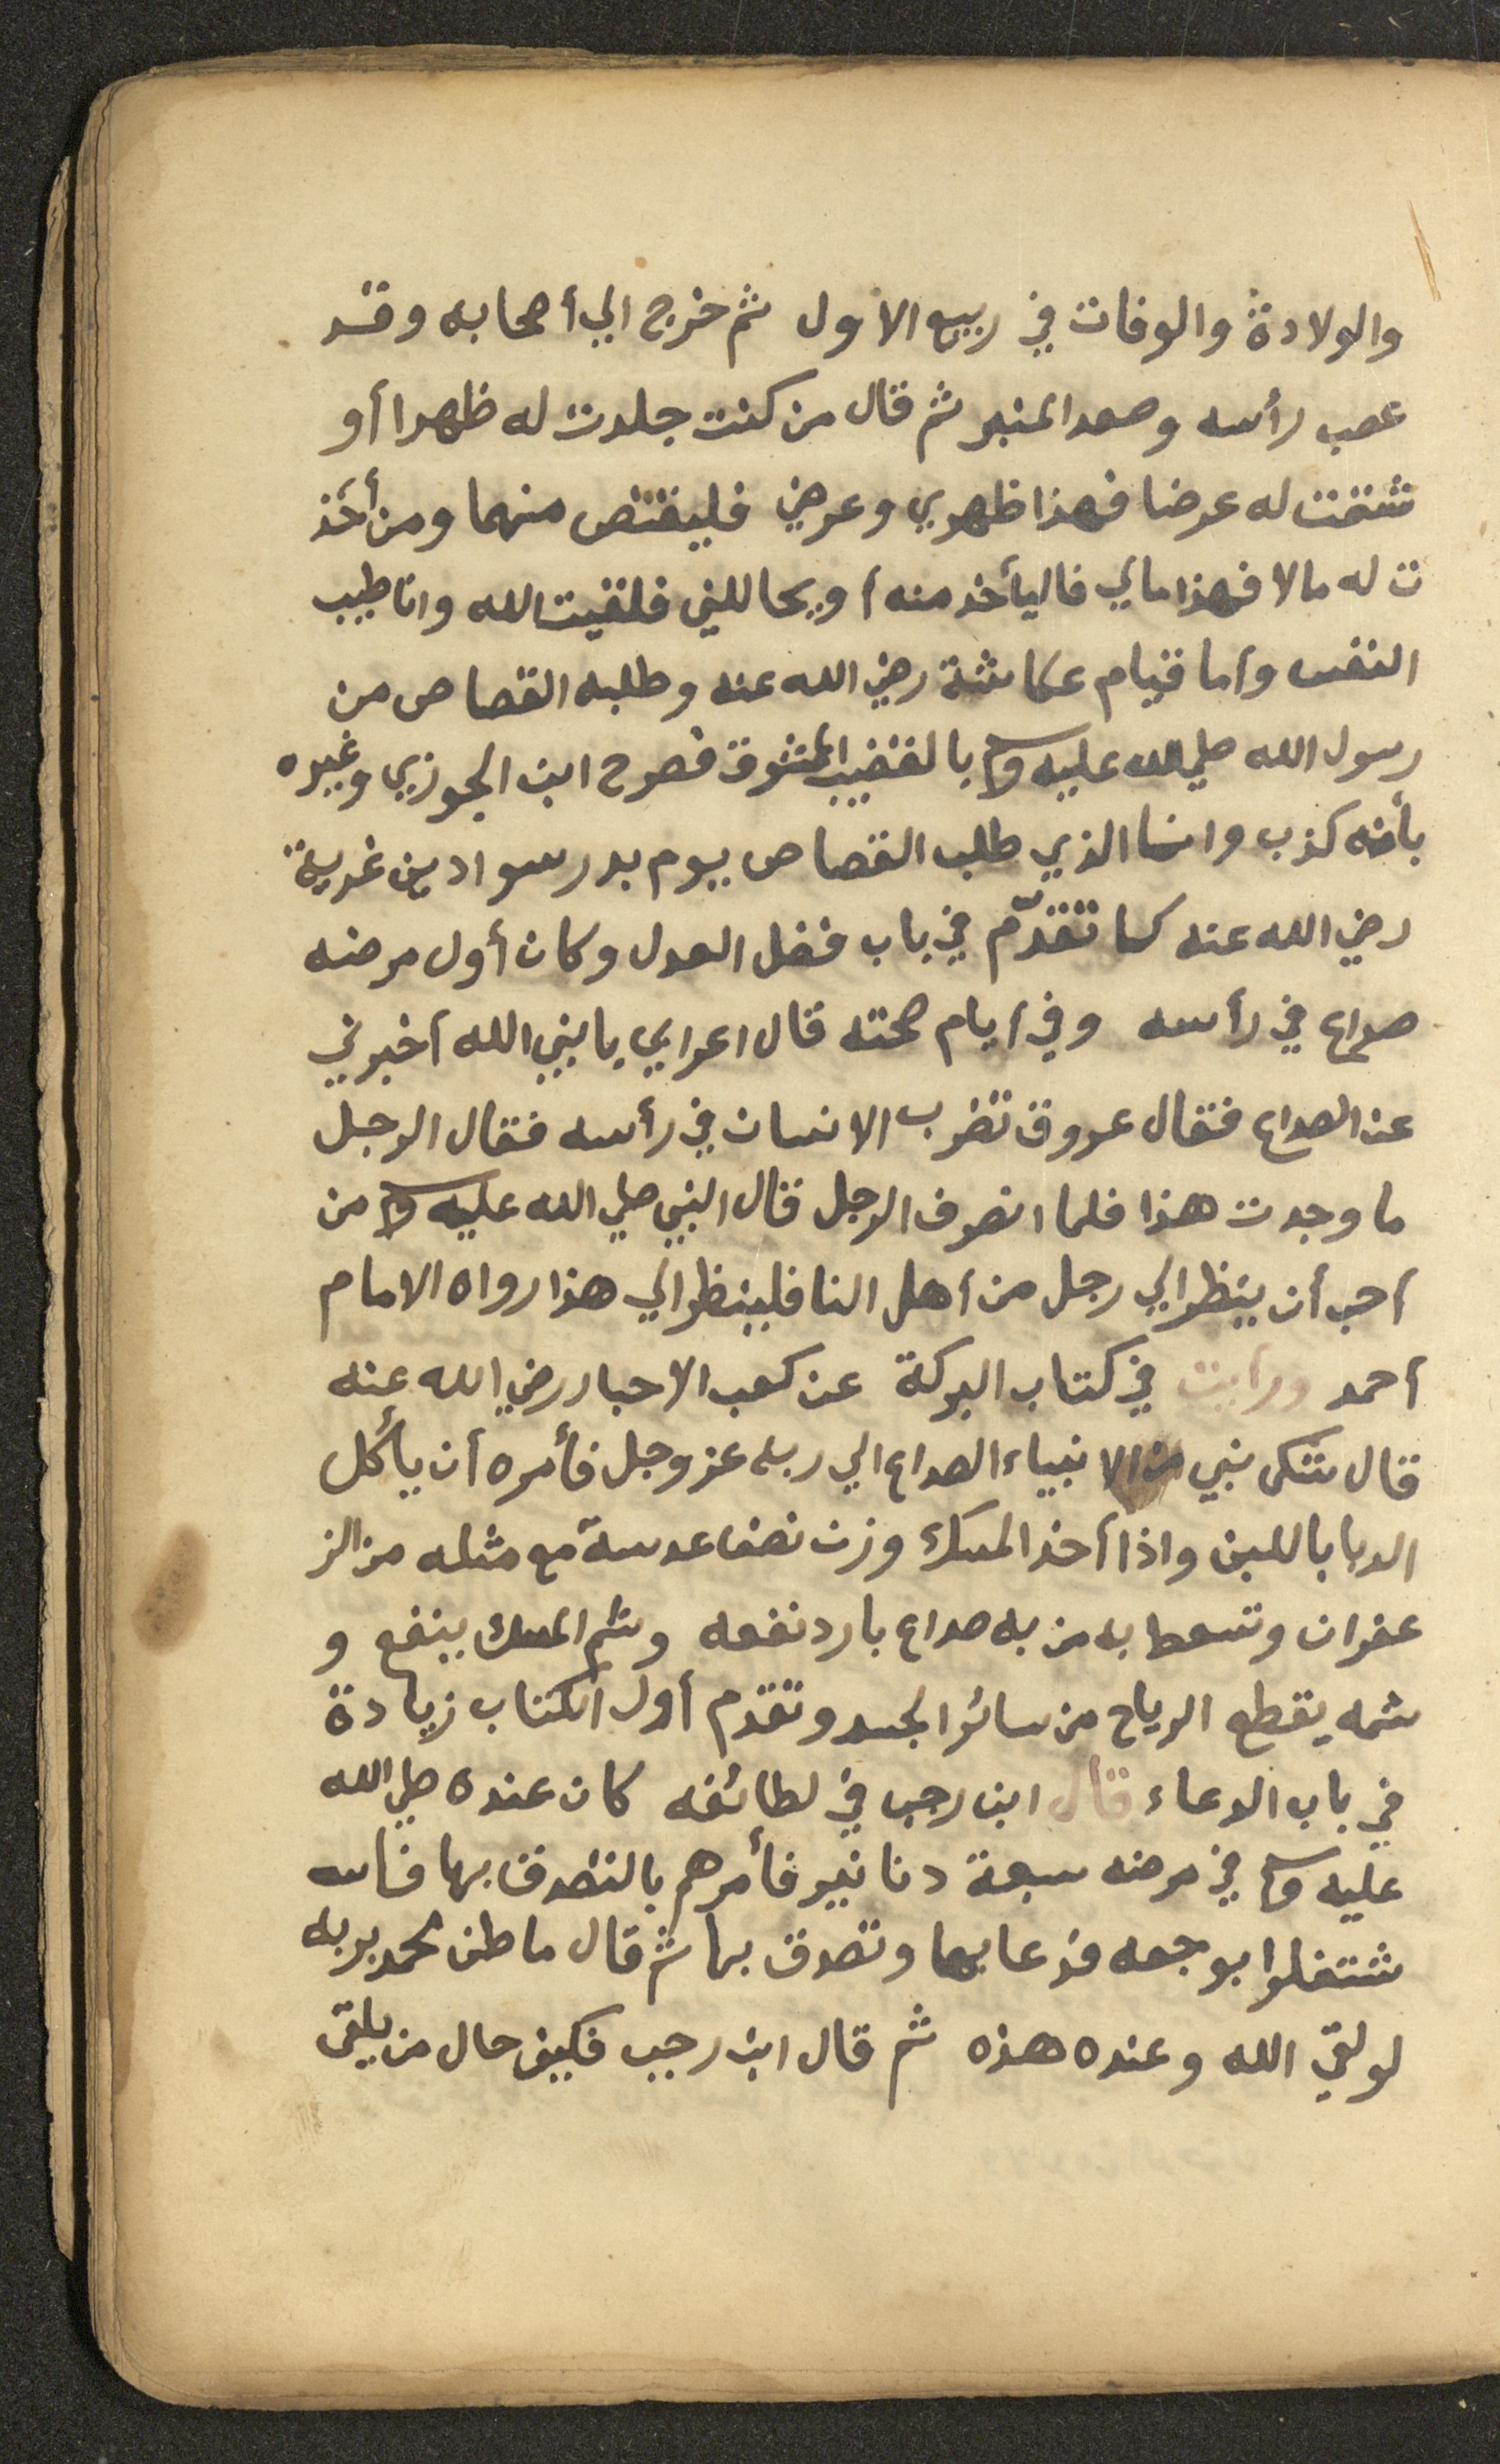 والولادة والوفات في ربيع الاول ثم خرج الي أصحابه وقد
عصب رأسه وصعد المنبر ثم قال من كنت جلدت له ظهرا أو
شتمت له عرضا فهذا ظهري وعرضي فليقتص منهما ومن أخذ
ت له مالا فهذا مالي فاليأخذ منه أو يحاللني فلقيت الله وانا طيب
النفس وأما قيام عكاشة رضي الله عنه وطلبه القصاص من
رسول الله صلي الله عليه وسلم بالقضيب الممشوق فصرح ابن الجوزي وغيره
بأنه كذب وانما الذي طلب القصاص يوم بدر سواد بن غزية
رضي الله عنه كما تقدّم في باب فضل العدل وكان أول مرضه
صداع في رأسه وفي أيام صحته قال اعرابي يا نبي الله أخبرني
عن الصداع فقال عروق تضرب الانسان في رأسه فقال الرجل
ما وجدت هذا فلما انصرف الرجل قال النبي صلي الله عليه وسلم من
أحب أن ينظر الي رجل من أهل النا فلينظر الي هذا رواه الامام
أحمد ورأيت في كتاب البركة عن كعب الاحبار رضي الله عنه
قال شكى نبي من الانبياء الصداع الي ربه عز وجل فأمره أن يأكل
الدبا باللبن واذا أخذ المسك وزن نصف عدسة مع مثله من الز
عفران وتسعط به من به صداع بارد نفعه وشم المسك ينفع و
شمه يقطع الرياح من سائر الجسد وتقدم أول الكتاب زيادة
في باب الدعاء قال ابن رجب في لطائفه كان عنده صلي الله
عليه وسلم في مرضه سبعة دنانير فأمرهم بالتصدق بها فاسه
شتغلوا بوجعه فدعا بها وتصدق بها ثم قال ما ظن محمد بربه
لو لقي الله وعنده هذه ثم قال ابن رجب فكيف حال من يلقى